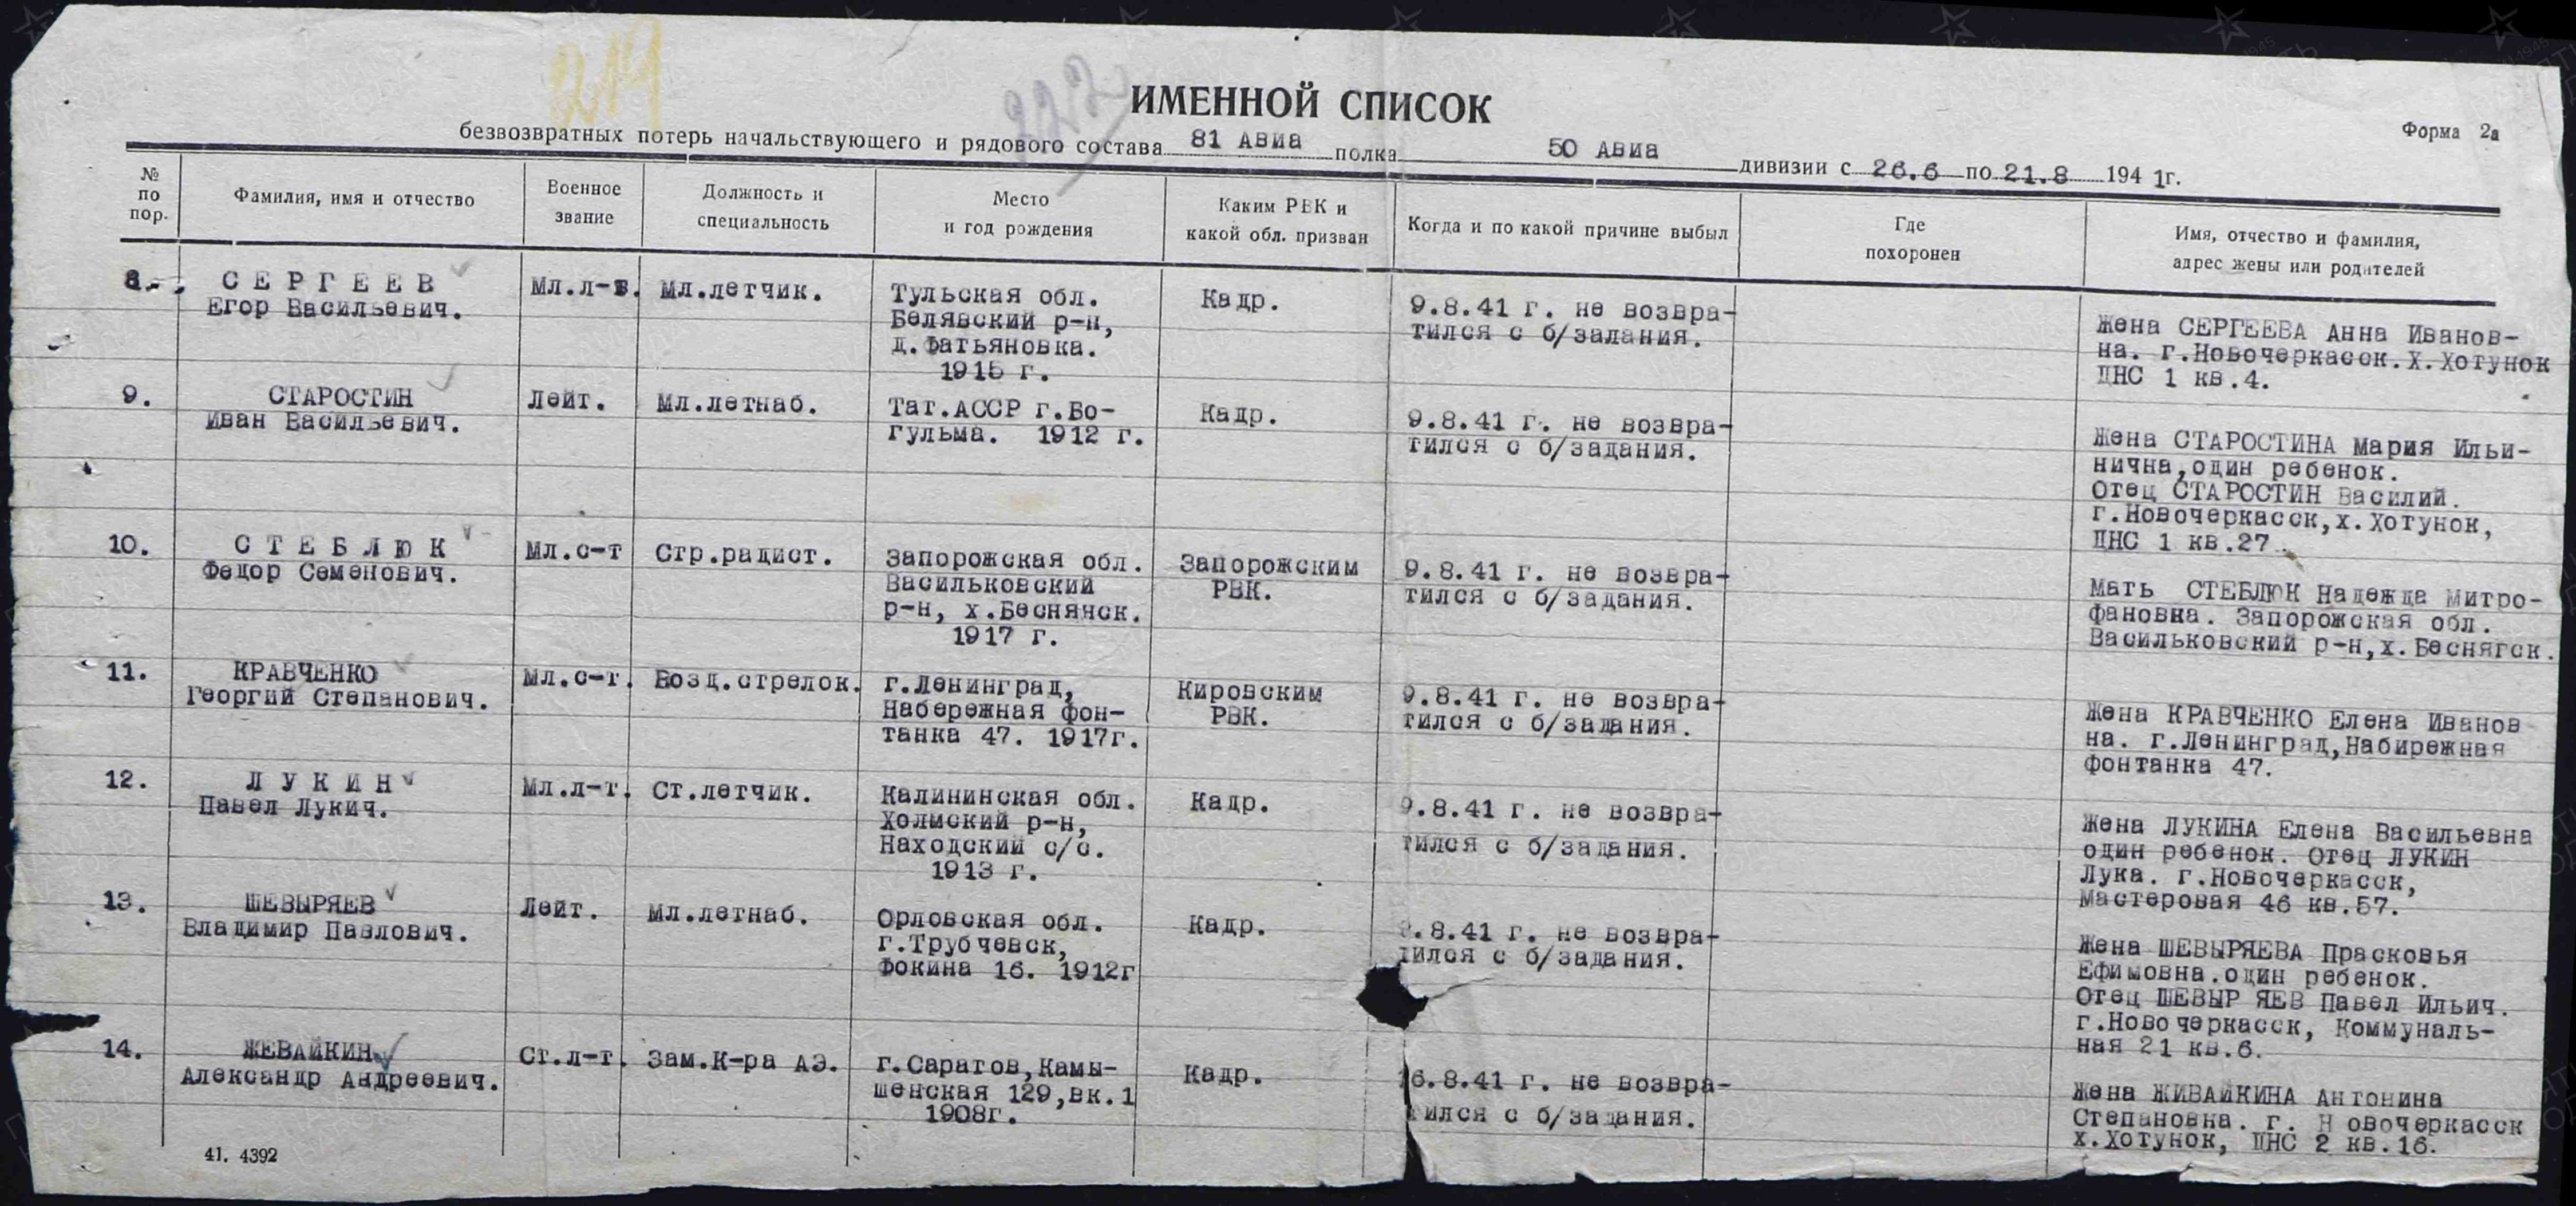 219
222
ИМЕННОЙ СПИСОК
Форма 2а
безвозвратных потерь начальствующего и рядового состава 81 Авиа полка 50 Авиа дивизии с 26.6 по 21.8 1941г.
№ по пор.
Фамилия, имя и отчество
Военное звание
Должность и специальность
Место и год рождения
Каким РВК и какой обл. призван
Когда и по какой причине выбыл
Где похоронен
Имя, отчество и фамилия, адрес жены или родителей
8.
СЕРГЕЕВ
Егор Васильевич.
Мл.л-т.
Мл.летчик.
Тульская обл.
Белявский р-н,
д.Фатьяновка.
1915 г.
Кадр.
9.8.41 г. не возвра-
тился с б/задания.
Жена СЕРГЕЕВА Анна Иванов-
на. г.Новочеркасск.Х.Хотунок
ДНС 1 кв.4.
9.
СТАРОСТИН
Иван Васильевич.
Лейт.
Мл.летнаб.
Тат.АССР г.Бо-
гульма. 1912 г.
Кадр.
9.8.41 г. не возвра-
тился с б/задания.
Жена СТАРОСТИНА Мария Ильи-
нична,один ребенок.
Отец СТАРОСТИН Василий.
г.Новочеркасск,х.Хотунок,
ДНС 1 кв.27.
10.
СТЕБЛЮК
Федор Семенович.
Мл.с-т
Стр.радист.
Запорожская обл.
Васильковский
р-н, х.Беснянск.
1917 г.
Запорожским
РВК.
9.8.41 г. не возвра-
тился с б/задания.
Мать СТЕБЛЮК Надежда Митро-
фановна. Запорожская обл.
Васильковский р-н,х.Беснягск.
11.
КРАВЧЕНКО
Георгий Степанович.
Мл.с-т.
Возд.стрелок.
г.Ленинград,
Набережная фон-
танка 47. 1917г.
Кировским
РВК.
9.8.41 г. не возвра-
тился с б/задания.
Жена КРАВЧЕНКО Елена Иванов-
на. г.Ленинград,Набирежная
фонтанка 47.
12.
ЛУКИН
Павел Лукич.
Мл.л-т.
Ст.летчик.
Калининская обл.
Холмский р-н,
Находский с/с.
1913 г.
Кадр.
9.8.41 г. не возвра-
тился с б/задания.
Жена ЛУКИНА Елена Васильевна
один ребенок. Отец ЛУКИН
Лука. г.Новочеркасск,
Мастеровая 46 кв.57.
13.
ШЕВЫРЯЕВ
Владимир Павлович.
Лейт.
Мл.летнаб.
Орловская обл.
г.Трубчевск,
Фокина 16. 1912г
Кадр.
9.8.41 г. не возвра-
тился с б/задания.
Жена ШЕВЫРЯЕВА Прасковья
Ефимовна.один ребенок.
Отец ШЕВЫР ЯЕВ Павел Ильич.
г.Новочеркасск, Коммуналь-
ная 21 кв.6.
14.
ЖЕВАЙКИН
Александр Андреевич.
Ст.л-т.
Зам.К-ра АЭ.
г.Саратов,Камы-
шенская 129,вк.1
1908г.
Кадр.
16.8.41 г. не возвра-
тился с б/задания.
Жена ЖИВАЙКИНА Антонина
Степановна. г. Н овочеркасск
х.Хотунок, ДНС 2 кв.16.
41. 4392